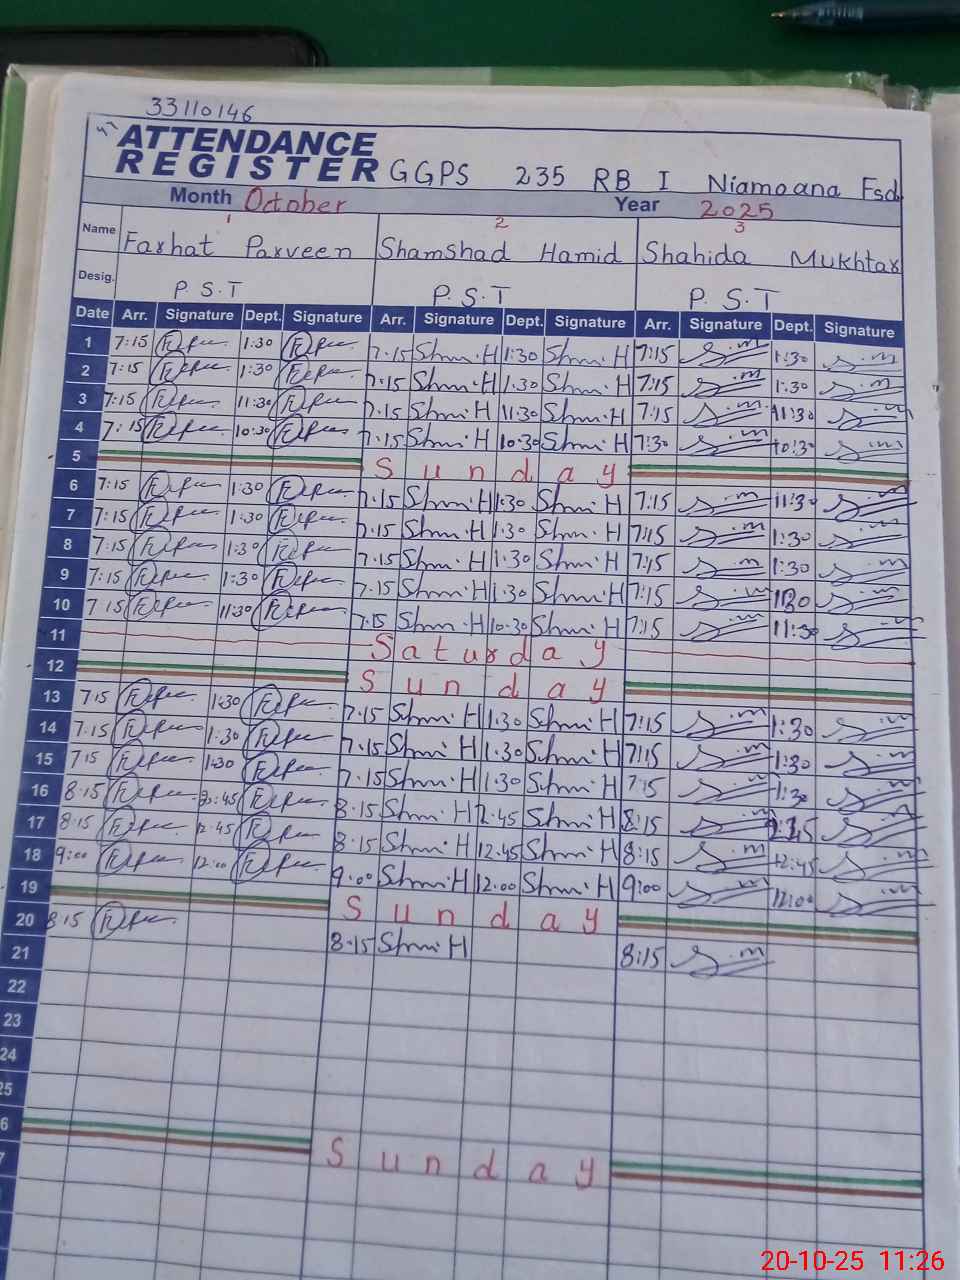 33110146
ATTENDANCE
REGISTER GGPS 235 RB I Niamoana Fsd.
Month October Year 2025
1 2 3
Name Farhat Parveen Shamshad Hamid Shahida Mukhtar
Desig. P.S.T P.S.T P.S.T
Date Arr. Signature Dept. Signature Arr. Signature Dept. Signature Arr. Signature Dept. Signature
1 7:15 1:30 7.15 Shm.H 1:30 Shm.H 7:15 S.m 1:30 S.m
2 7:15 1:30 7.15 Shm.H 1.30 Shm.H 7:15 S.m 1:30 S.m
3 7:15 11:30 7.15 Shm.H 11.30 Shm.H 7:15 S.m 11:30 S.m
4 7:15 10:30 7.15 Shm.H 10.30 Shm.H 7:30 S.m 10:30 S.m
5 Sunday
6 7:15 1:30 7.15 Shm.H 1:30 Shm.H 7:15 S.m 11:30 S.m
7 7:15 1:30 7.15 Shm.H 1.30 Shm.H 7:15 S.m 1:30 S.m
8 7:15 1:30 7.15 Shm.H 1.30 Shm.H 7:15 S.m 1:30 S.m
9 7:15 1:30 7.15 Shm.H 1.30 Shm.H 7:15 S.m S.m
10 7:15 11:30 7.15 Shm.H 10.30 Shm.H 7:15 S.m 11:30 S.m
11 Saturday
12 Sunday
13 7:15 1:30 7.15 Shm.H 1.30 Shm.H 7:15 S.m 1:30 S.m
14 7:15 1:30 7.15 Shm.H 1.30 Shm.H 7:15 S.m 1:30 S.m
15 715 1:30 7.15 Shm.H 1:30 Shm.H 7:15 S.m 1:30 S.m
16 8:15 :45 8.15 Shm.H 2.45 Shm.H 8:15 S.m S.m
17 8:15 12.45 8.15 Shm.H 12.45 Shm.H 8:15 S.m 12:45 S.m
18 9:00 12:00 9.00 Shm.H 12.00 Shm.H 9:00 S.m 12:00 S.m
19 Sunday
20 8:15 8.15 Shm.H 8:15 S.m
21
22
23
24
25
6 Sunday
7
20-10-25 11:26